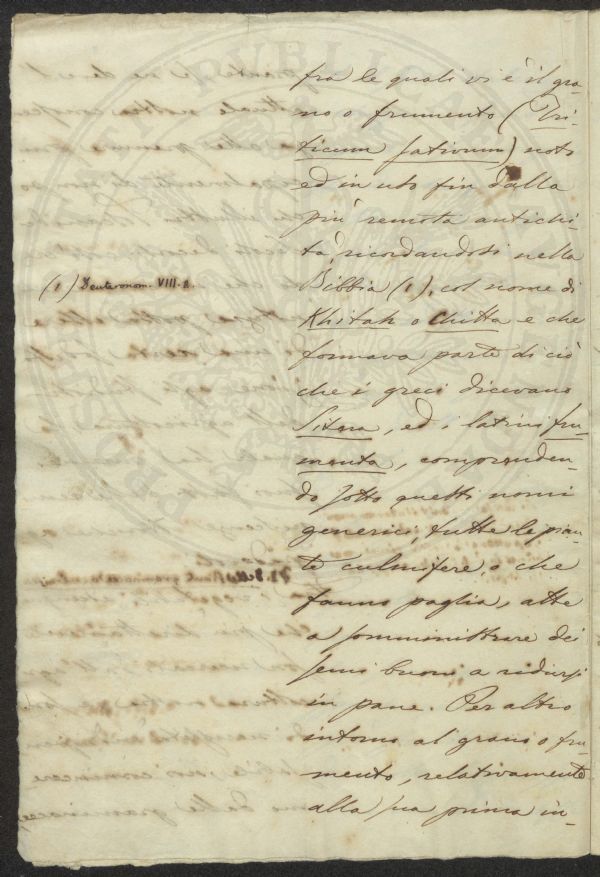 fra le quali vi è il gra-
no o frumento (Tri-
ticum sativum) noto
ed in uso fin dalla
più remota antichi-
tà, ricordandosi nella
(1) Deuteronom. VIII. 8.
Bibbia (1), col nome di
Khitah o Chitta e che
formava parte di ciò
che i greci dicevano
Sitona, ed i latini fru-
menta, comprenden-
do sotto questi nomi
generici, tutte le pian-
te culmifere, o che
fanno paglia, atte
a somministrare dei
semi buoni a ridursi
in pane. Per altro
intorno al grano o fru-
mento, relativamente
alla sua prima in-